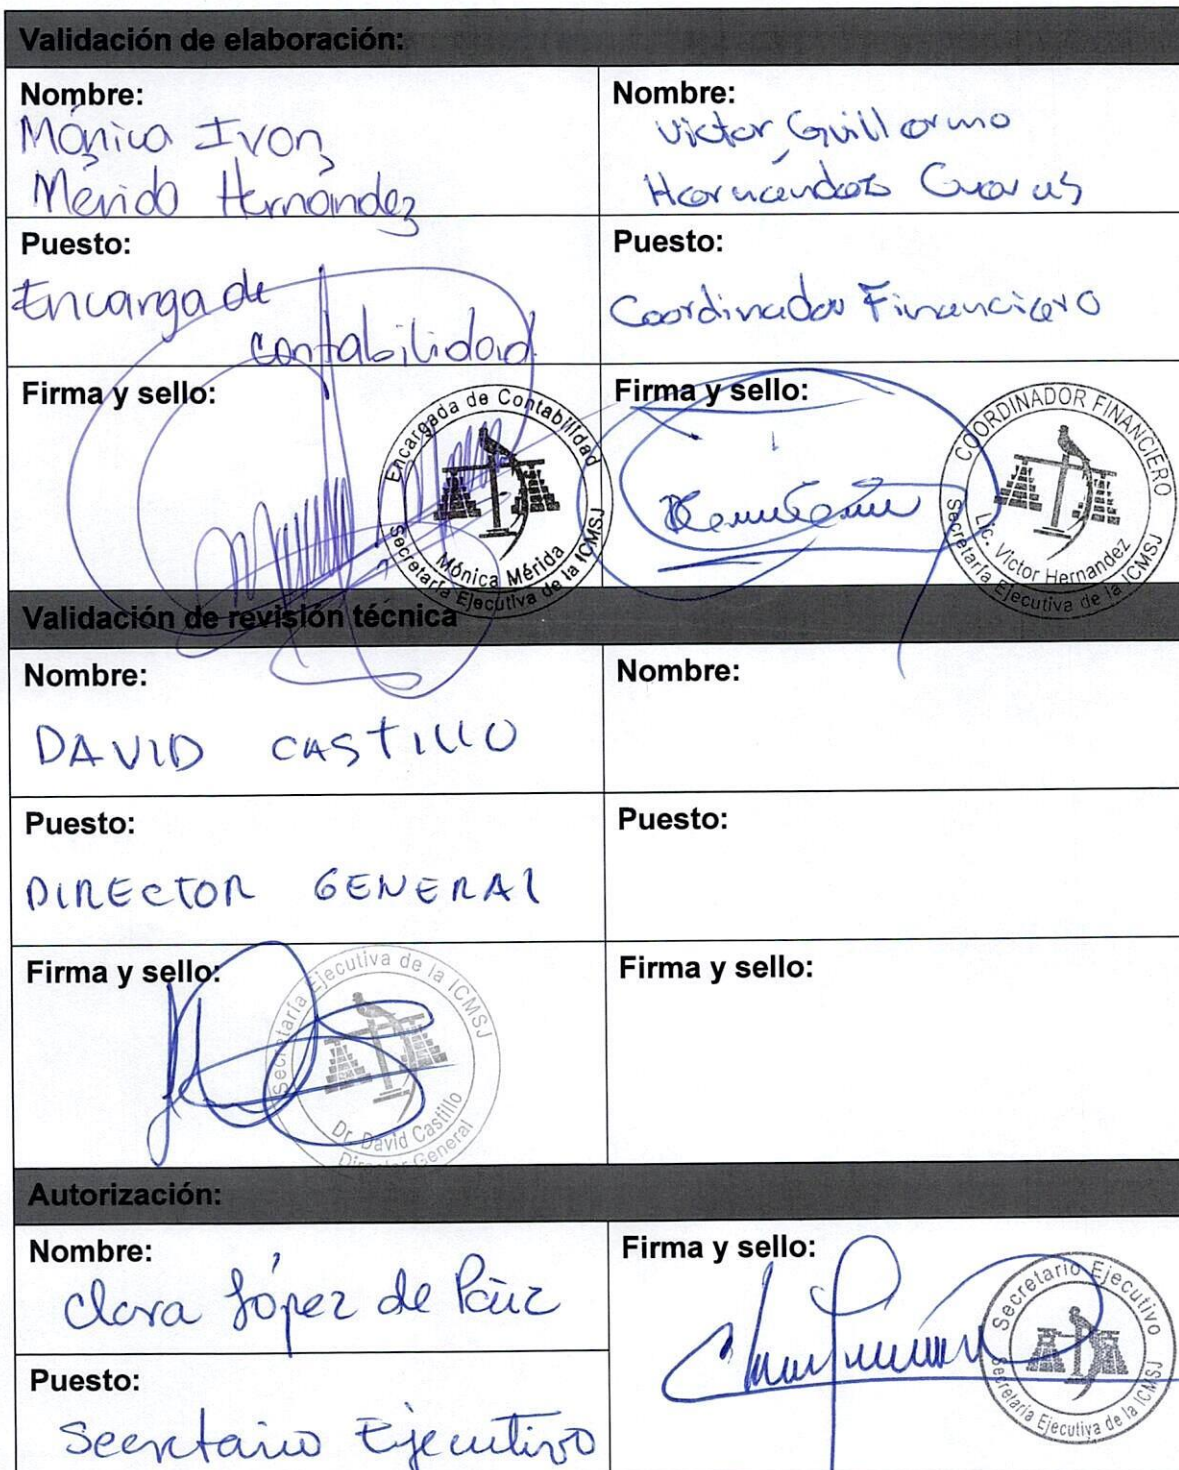 Validación de elaboración:
Nombre:
Mónica Ivon
Mérida Hernández
Nombre:
Victor Guillermo
Hernández
Puesto:
Encarga de
Contabilidad
Puesto:
Coordinador Financiero
Firma y sello:
Encargada de Contabilidad
Mónica Mérida
Secretaría Ejecutiva de la ICMSJ
Firma y sello:
COORDINADOR FINANCIERO
Lic. Victor Hernandez
Secretaría Ejecutiva de la ICMSJ
Validación de revisión técnica
Nombre:
DAVID CASTILLO
Nombre:
Puesto:
DIRECTOR GENERAL
Puesto:
Firma y sello:
Secretaría Ejecutiva de la ICMSJ
Dr. David Castillo
Director General
Firma y sello:
Autorización:
Nombre:
Clara López de Páiz
Firma y sello:
Secretario Ejecutivo
Secretaría Ejecutiva de la ICMSJ
Puesto:
Secretario Ejecutivo